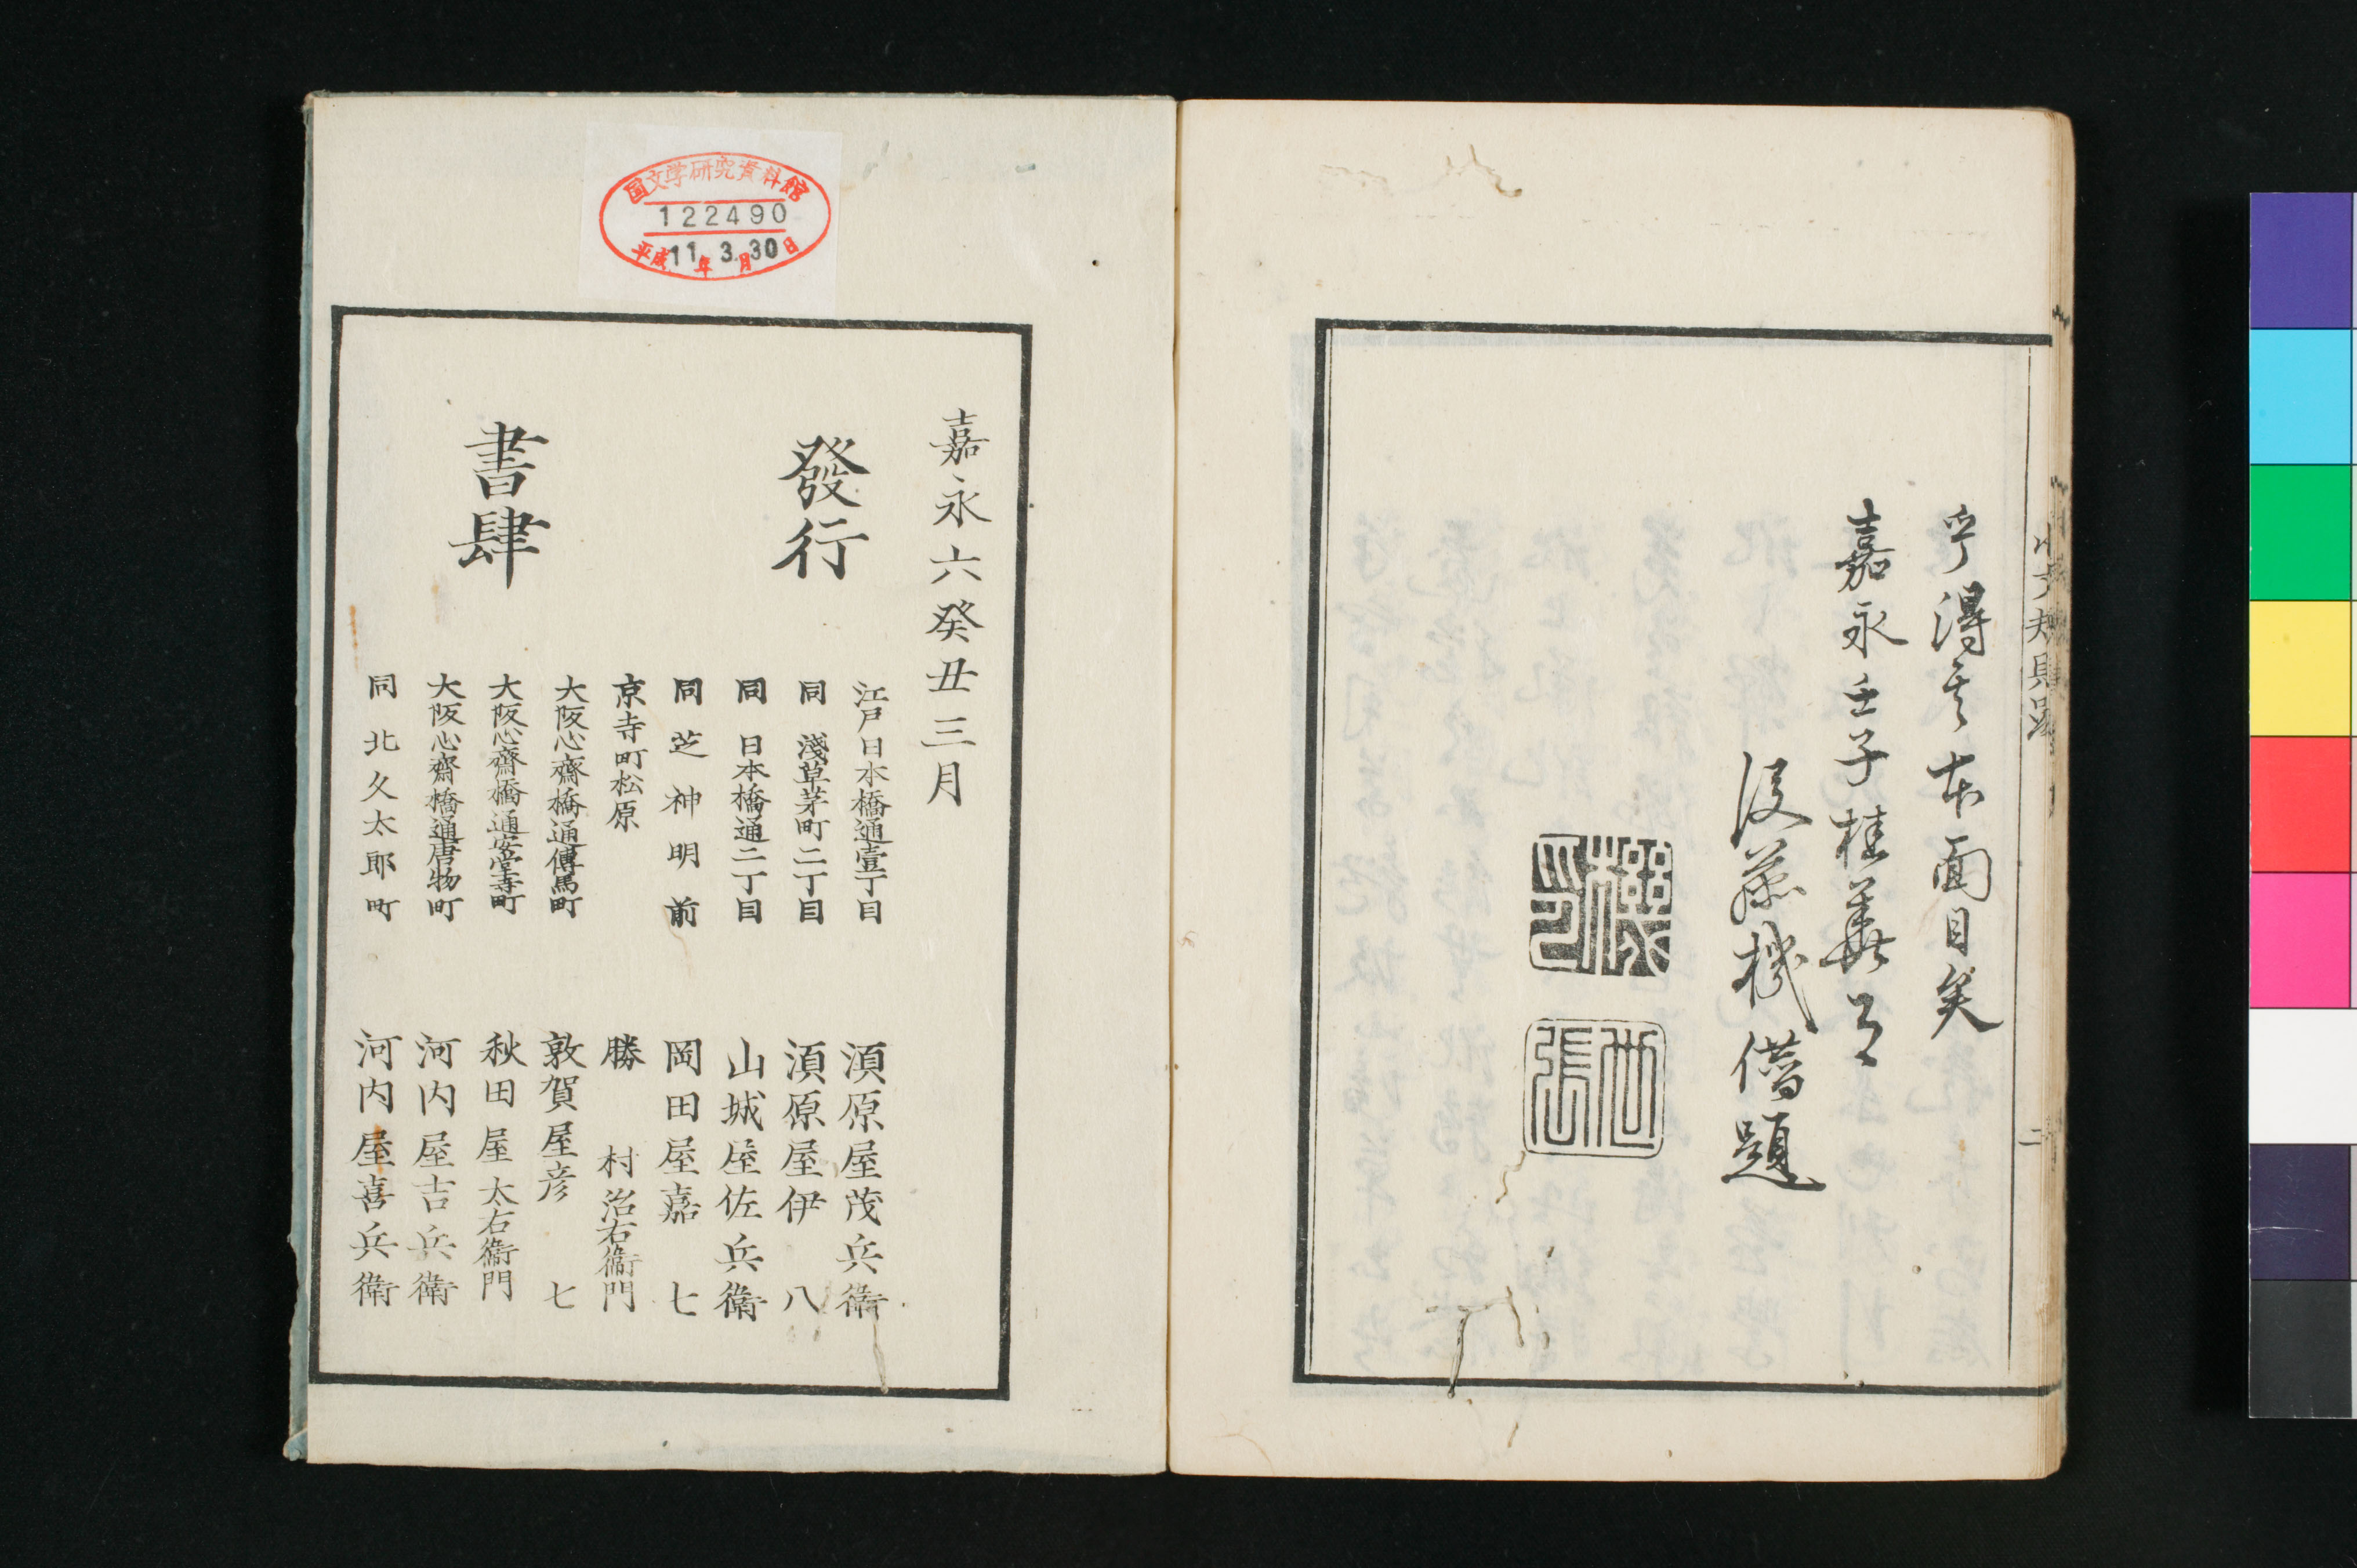 乎得其本面目矣
嘉永壬子桂華月
後藤機僣題
二
国文学研究資料館
122490
平成11年3月30日
嘉永六癸丑三月
發行
書肆
江戸日本橋通壹丁目 須原屋茂兵衛
同 淺草茅町二丁目 須原屋伊八
同 日本橋通二丁目 山城屋佐兵衛
同 芝神明前 岡田屋嘉七
京寺町松原 勝村治右衛門
大阪心齋橋通傳馬町 敦賀屋彦七
大阪心齋橋通安堂寺町 秋田屋太右衛門
大阪心齋橋通唐物町 河内屋吉兵衛
同 北久太郎町 河内屋喜兵衛